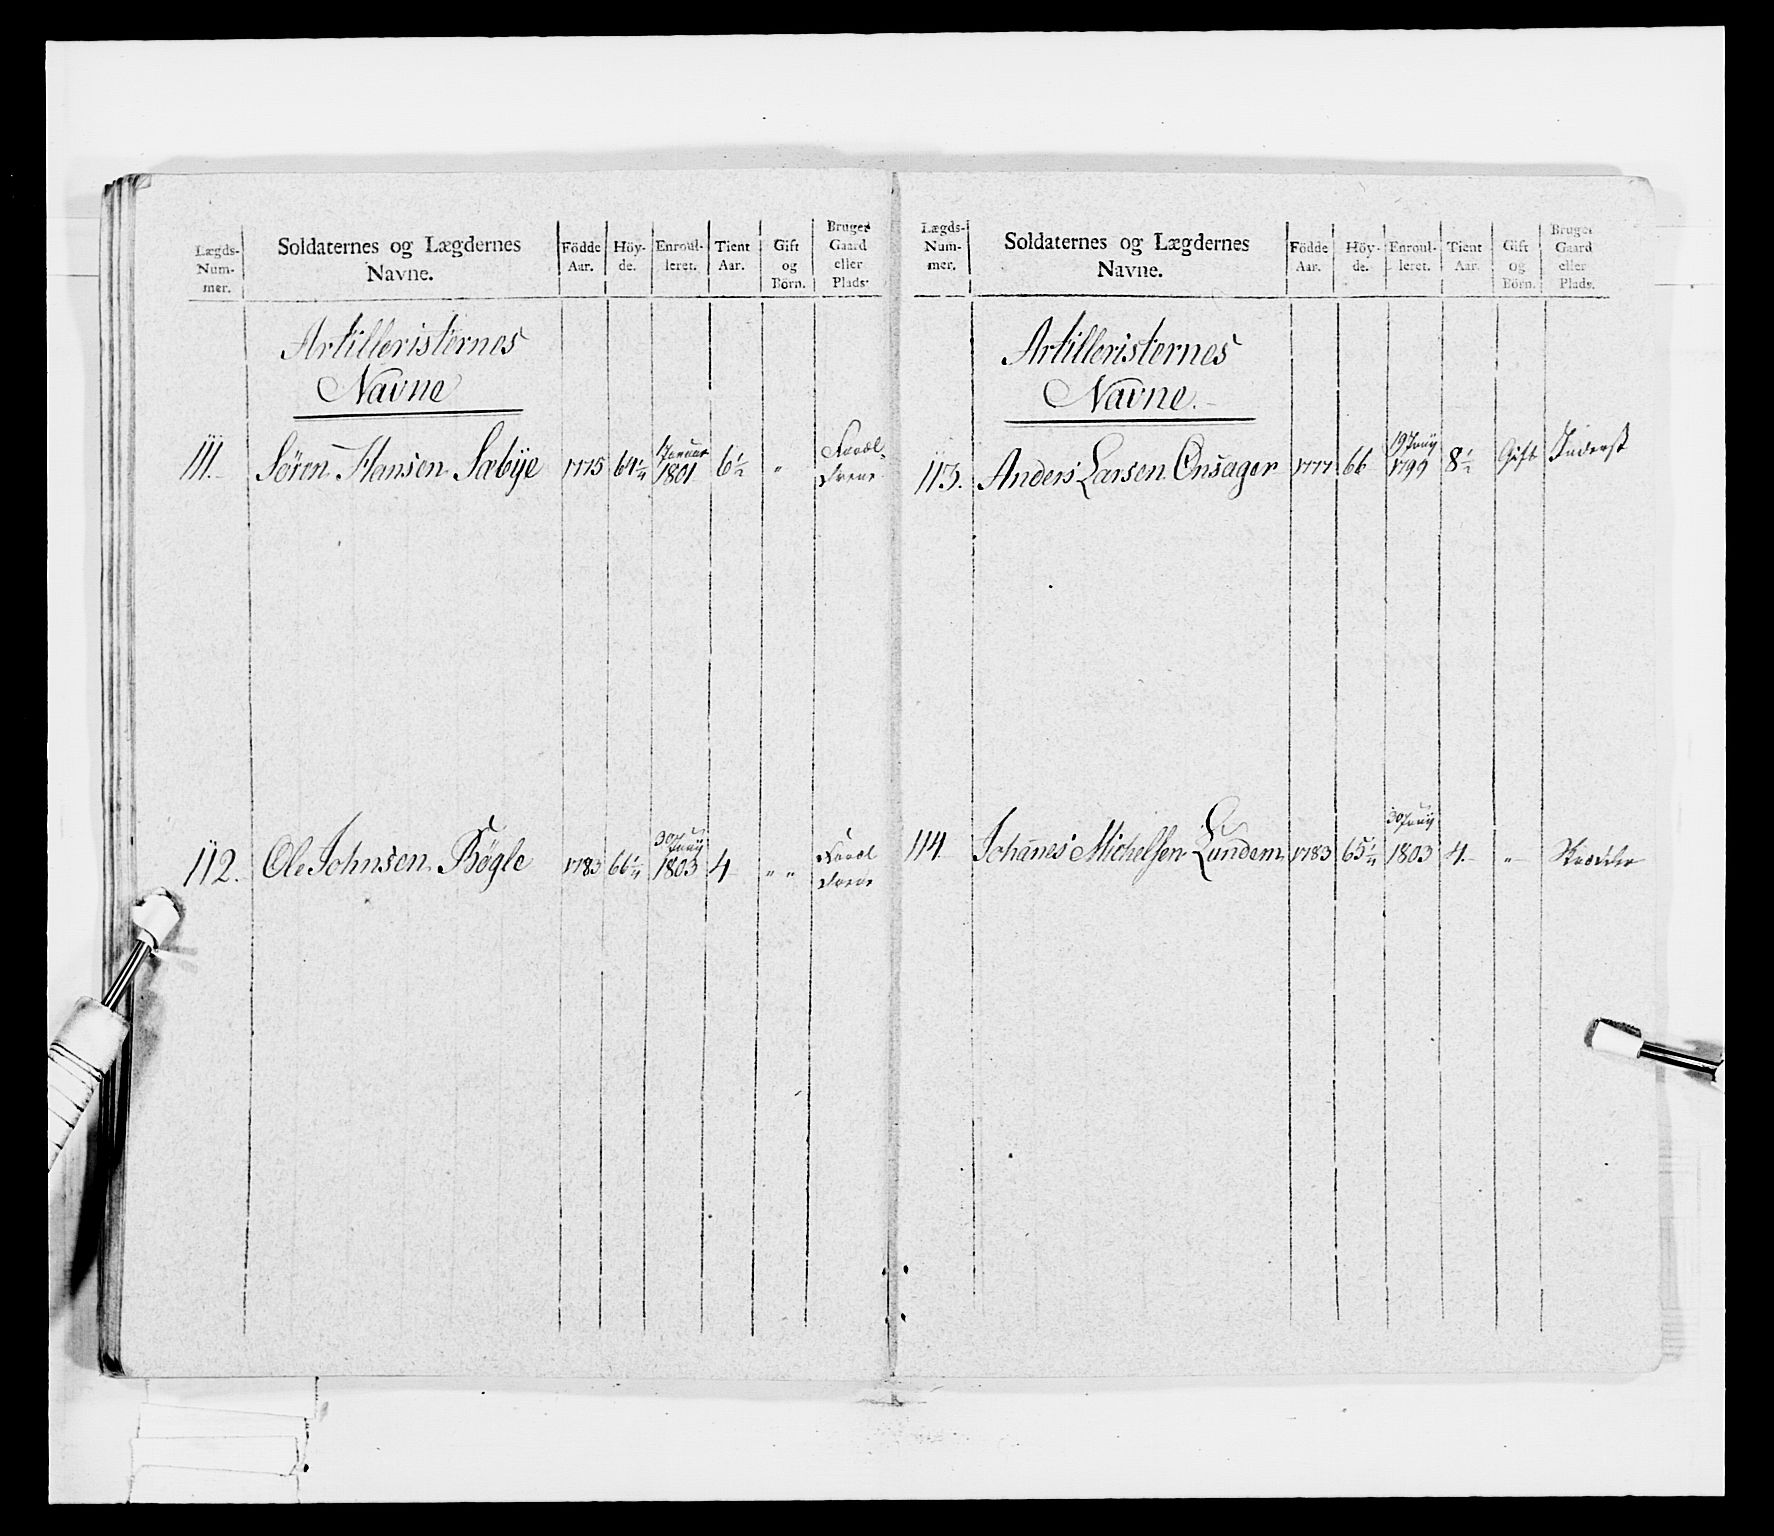 Lægds-Num-mer. Soldaternes og Lægdernes Navne. Födde Aar. Höy-de. Enroul-leret. Tient Aar. Gift og Börn. Bruger Gaard eller Plads.
Artilleristernes
Navne
111. Søren Hansen Sæbÿe 1775 64 1/2 1 Januar 1801 6 1/2 "
112. Ole Johnsen Bøgle 1783 66 1/2 30 Junÿ 1803 4 " "
Lægds-Num-mer. Soldaternes og Lægdernes Navne. Födde Aar. Höy-de. Enroul-leret. Tient Aar. Gift og Börn. Bruger Gaard eller Plads.
Artilleristernes
Navne.
113. Anders Larsen Onsager 1777 66 19 Junÿ 1799 8 1/2 Gift Inderst
114. Johannes Michelsen Lundem 1783 65 1/2 30 Junÿ 1803 4. "